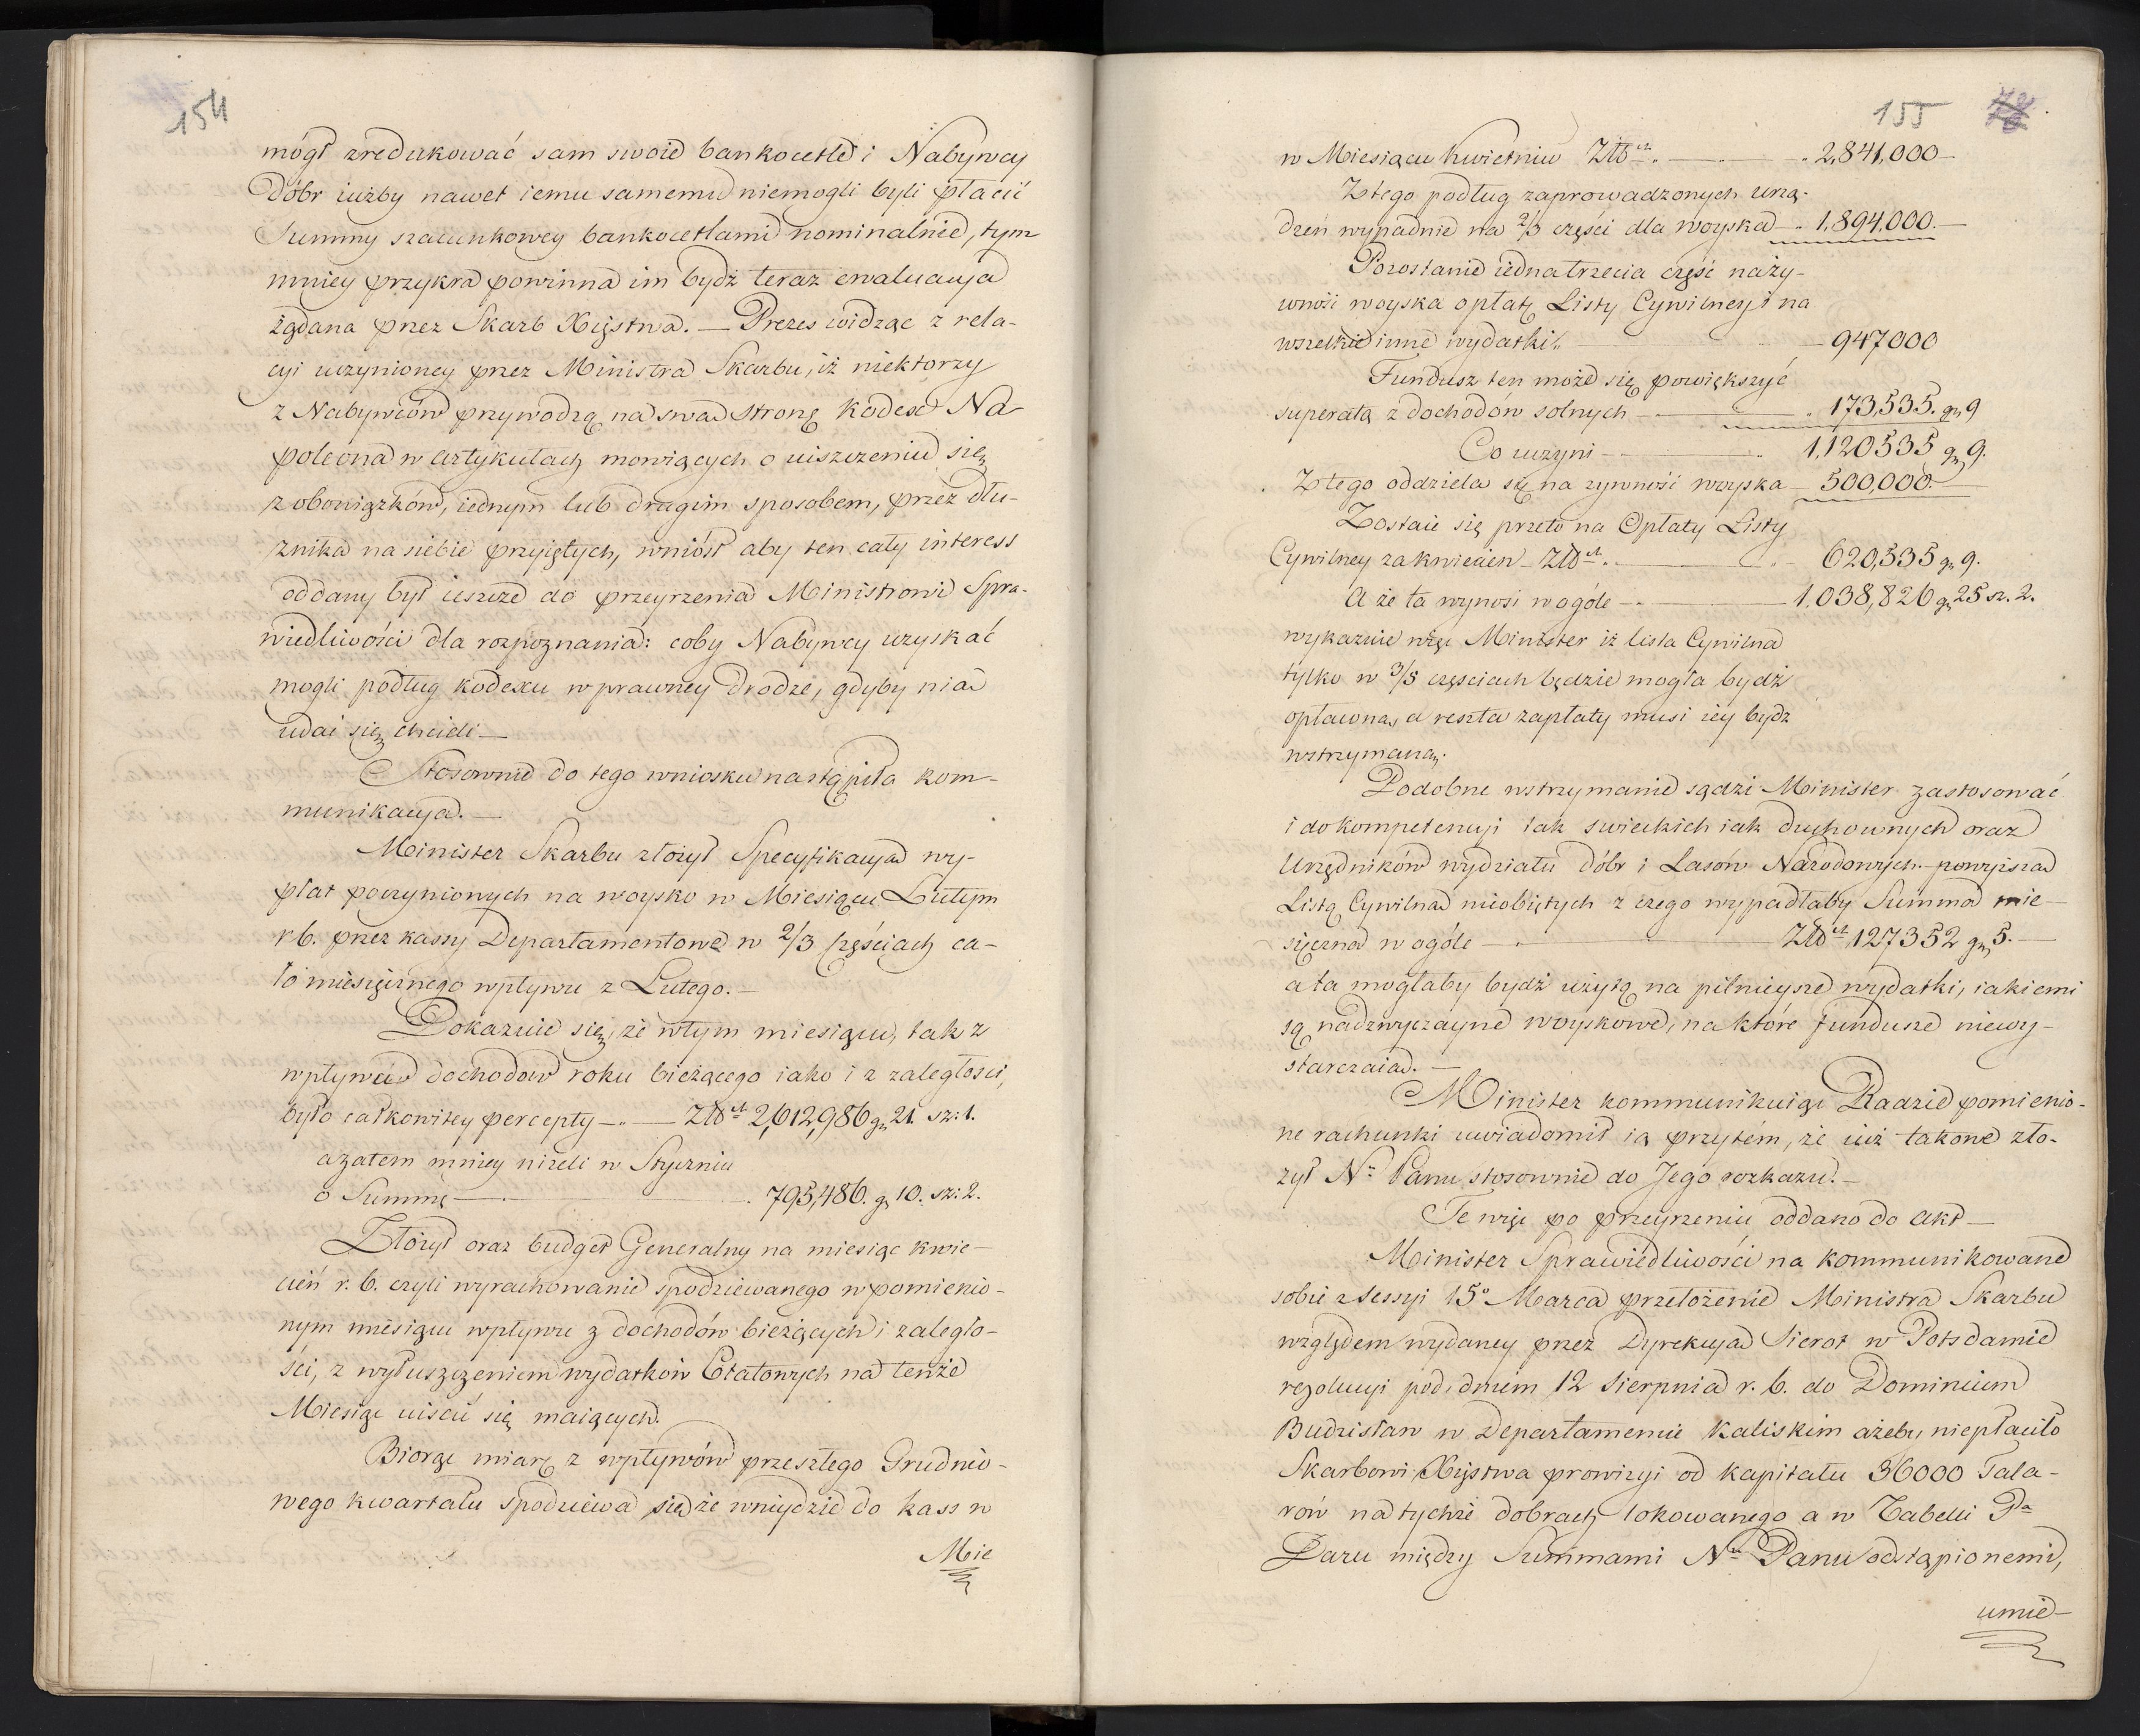 154
mógł zredukować sam swoie bankocetle i Nabywcy
Dóbr iużby nawet iemu samemu niemogli byli płacić
Summy szacunkowey bankocetlami nominalnie, tym
mniey przykra powinna im bydź teraz ewaluacya
żądana przez Skarb Xięstwa. — Prezes widząc z rela-
cyi uczynioney przez Ministra Skarbu, iż niektorzy
z Nabywców przywodzą na swa stronę Kodex Na-
poleona w artykułach mowiących o uiszczeniu się
z obowiązków, iednym lub drugim sposobem, przez dłu-
żnika na siebie przyiętych, wniósł aby ten cały interess
oddany był ieszcze do przeyrzenia Ministrowi Spra-
wiedliwości dla rozpoznania: coby Nabywcy uzyskać
mogli podług kodexu w prawney drodze, gdyby nia
udai się chcieli —
Stosownie do tego wniosku nastąpiła kom-
munikacya. —
Minister Skarbu złożył Specyfikacya wy-
płat poczynionych na woysko w Miesiącu Lutym
r b. przez kassy Departamentowe w 2/3 Częściach ca-
ło miesięcznego wpływu z Lutego. —
Dokazuie się, że w tym miesiącu, tak z
wpływów dochodow roku bieżącego iako i z zaległosci,
było całkowitey percepty —.— Złtt 2,612,986 gr 21. sz: 1.
a zatem mniey niżeli w Styczniu
o Summę — . 795,486. gr 10. sz: 2.
Złożył oraz budget Generalny na miesiąc kwie-
cień r. b. czyli wyrachowanie spodziewanego w pomienio-
nym miesiącu wpływu z dochodów bieżących i zaległo-
ści, z wyłuszczeniem wydatków Etatowych na tenże
Miesiąc uiscić się maiących.
Biorąc miarę z wpływów przeszłego Grudnio-
wego kwartału spodziewa się że wniydzie do kass w
Mie
155 78.
w Miesiącu kwietniu Złtt. — . 2,841,000 —
Z tego podług zaprowadzonych urzą-
dzeń wypadnie na 2/3 części dla woyska — . 1,894,000. —
Pozostanie iedna trzecia część na ży-
wnośi woyska opłatę Listy Cywilney i na
wszelkie inne wydatki. — 947000
Fundusz ten może się powiększyć
superatą z dochodów solnych — . 173,535. gr 9
Co uczyni — . 1,120535 gr 9.
Z tego oddziela są na zywnośi woyska — 500,000. —
Zostaie się przeto na Opłaty Listy
Cywilney za kwiecień Złtt. — 620,535 gr 9.
A że ta wynosi w ogóle — . 1,038,826 gr 25 sz. 2.
wykazuie więc Minister iż lista Cywilna
tylko w 3/5 częsciach będzie mogła bydź
opłacona, a reszta zapłaty musi iey bydz
wstrzymaną.
Podobne wstrzymanie sądzi Minister zastosować
i do kompetencyi tak swieckich iak duchownych oraz
Urzędników wydziału Dóbr i Lasów Narodowych powyższa
Listą Cywilna nieobiętych z czego wypadłaby Summa mie-
sięczna w ogóle — . Złtt 127352 gr 5. —
a ta mogłaby bydź użytą na pilnieysze wydatki, iakiemi
są nadzwyczayne woyskowe, na które fundusze niewy-
starczaia. —
Minister kommunikuiąc Radzie pomienio-
ne rachunki uwiadomił ią przytém, że iuż takowe zło-
żył Nu Panu stosownie do Jego rozkazu. —
Te więc po przeyrzeniu oddano do akt —
Minister Sprawiedliwości na kommunikowane
sobie z Sessyi 15o Marca przełożenie Ministra Skarbu
względem wydaney przez Dyrekcya Sierot w Potsdamie
rezolucyi pod dniem 12 Sierpnia r. b. do Dominium
Budzisław w Departamencie Kaliskim ażeby niepłaciło
Skarbowi Xięstwa prowizyi od kapitału 36000 Tala-
rów na tychże dobrach lokowanego a w Tabelli Pa
Daru między Summami Nu Panu odstąpionemi,
umie-